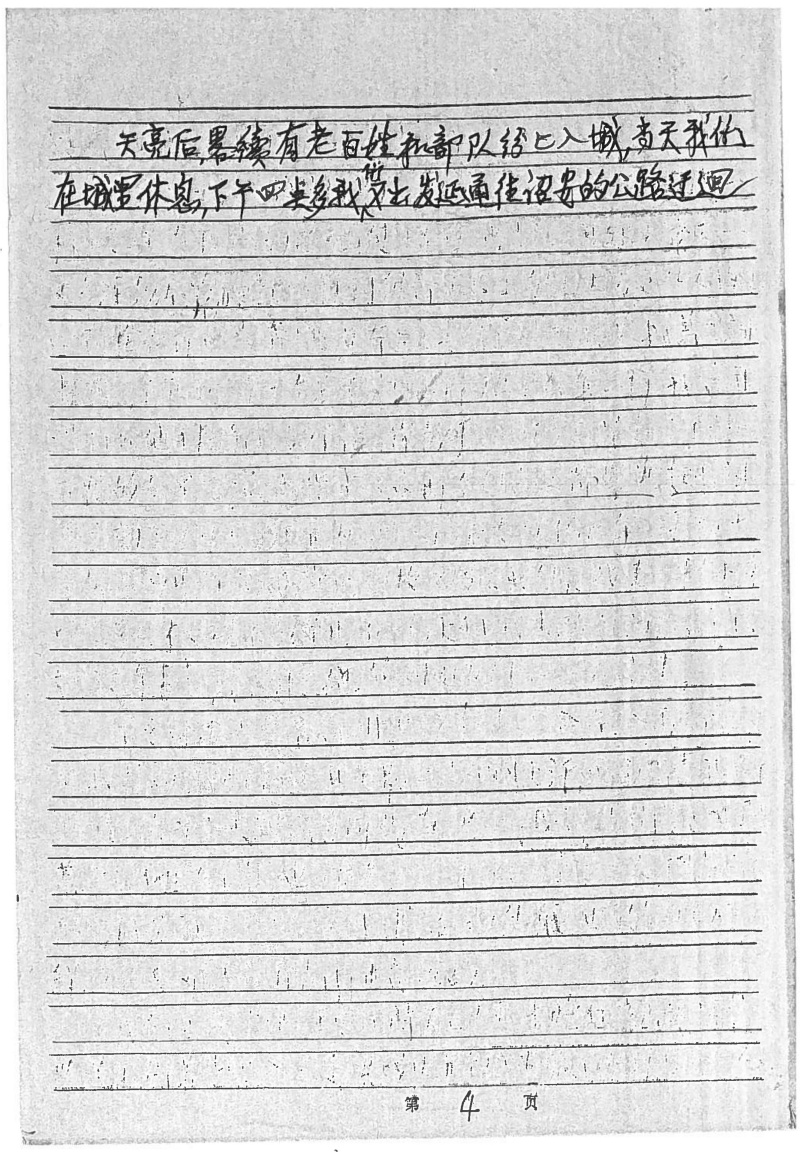 天亮后,畧續有老百姓和部队纷纷入城,当天我们
在城里休息,下午四点多我们又出发延通往诏安的公路迂迴
第 4 页